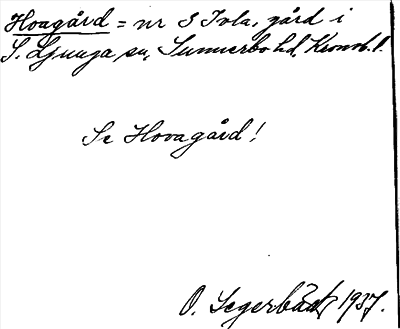 Hoagård = nr 3 Ivla, gård i
S. Ljunga sn, Sunnerbo hd, Kronob. l.
Se Hovagård!
O. Segerbäck 1937.